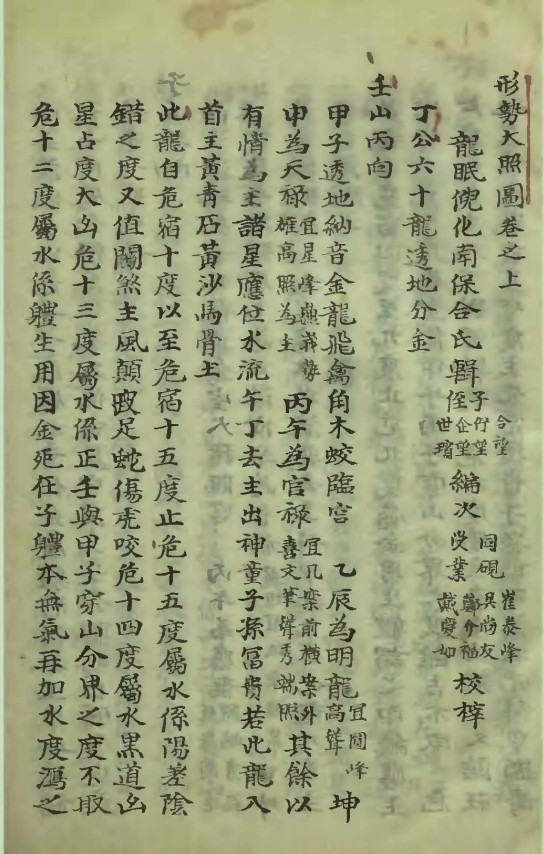 形勢大照圖卷之上
龍眠倪化南保合氏輯 子 侄 仔望 企望 合望 世瑨 編次 受業 同硯 崔泰峰 吳尚友 鄭介福 戴燮如 校梓
丁公六十龍透地分金
壬山丙向
甲子透地納音金龍飛禽角木蛟臨宮 乙辰為明龍宜圓峰高聳坤
申為天祿宜星峰巍峩勢雄高照為主 丙午為官祿宜几案前橫案外喜文筆聳秀端照其餘以
有情為主諸星應位水流午丁去主出神童子孫富貴若此龍入
首主黃青石黃沙馬骨土
此龍自危宿十度以至危宿十五度止危十五度屬水係陽差陰
錯之度又值關煞主風顛跛足蛇傷虎咬危十四度屬水黑道凶
星占度大凶危十三度屬水係正壬與甲子穿山分界之度不取
危十二度屬水係軆生用因金死在子軆本無氣再加水度瀉之